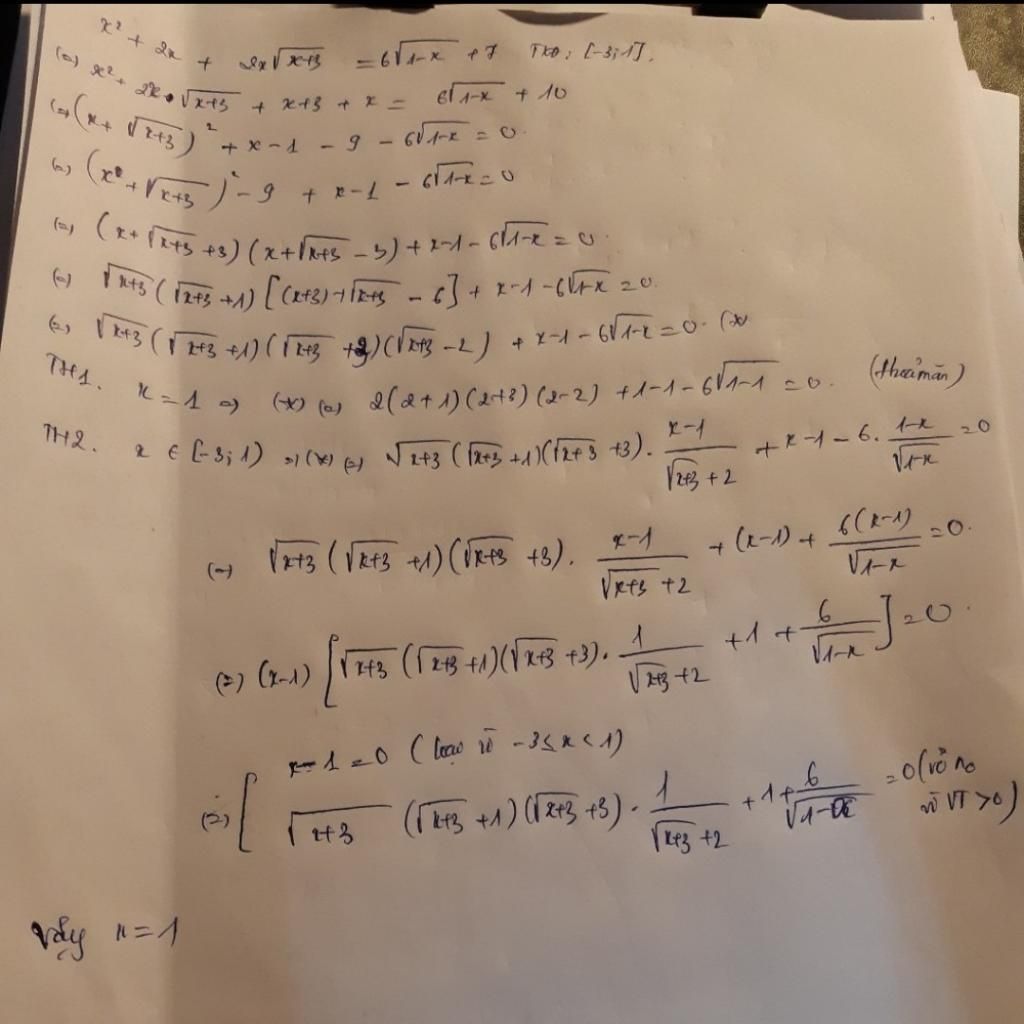 x² + 2x + 2x√(x+3) = 6√(1-x) + 7 TXĐ: [-3;1].
(=) x² + 2x.√(x+3) + x+3 + x = 6√(1-x) + 10
(=) (x + √(x+3))² + x - 1 - 9 - 6√(1-x) = 0.
(=) (x + √(x+3))² - 9 + x - 1 - 6√(1-x) = 0
(=) (x + √(x+3) + 3)(x + √(x+3) - 3) + x - 1 - 6√(1-x) = 0.
(=) √(x+3) (√(x+3) + 1) [(x+3) + √(x+3) - 6] + x - 1 - 6√(1-x) = 0.
(=) √(x+3) (√(x+3) + 1)(√(x+3) + 3)(√(x+3) - 2) + x - 1 - 6√(1-x) = 0. (*)
TH1. x = 1 => (*) (=) 2(2+1)(2+3)(2-2) + 1 - 1 - 6√(1-1) = 0. (thoả mãn)
TH2. x ∈ [-3;1) => (*) (=) √(x+3) (√(x+3) + 1)(√(x+3) + 3) . (x-1)/(√(x+3) + 2) + x - 1 - 6. (1-x)/√(1-x) = 0
(=) √(x+3) (√(x+3) + 1)(√(x+3) + 3). (x-1)/(√(x+3) + 2) + (x-1) + 6(x-1)/√(1-x) = 0.
(=) (x-1) [√(x+3) (√(x+3) + 1)(√(x+3) + 3). 1/(√(x+3) + 2) + 1 + 6/√(1-x)] = 0.
x - 1 = 0 (loại vì -3 ≤ x < 1)
(=) [ √(x+3) (√(x+3) + 1)(√(x+3) + 3) . 1/(√(x+3) + 2) + 1 + 6/√(1-x) = 0 (vô no vì VT > 0)
Vậy x = 1